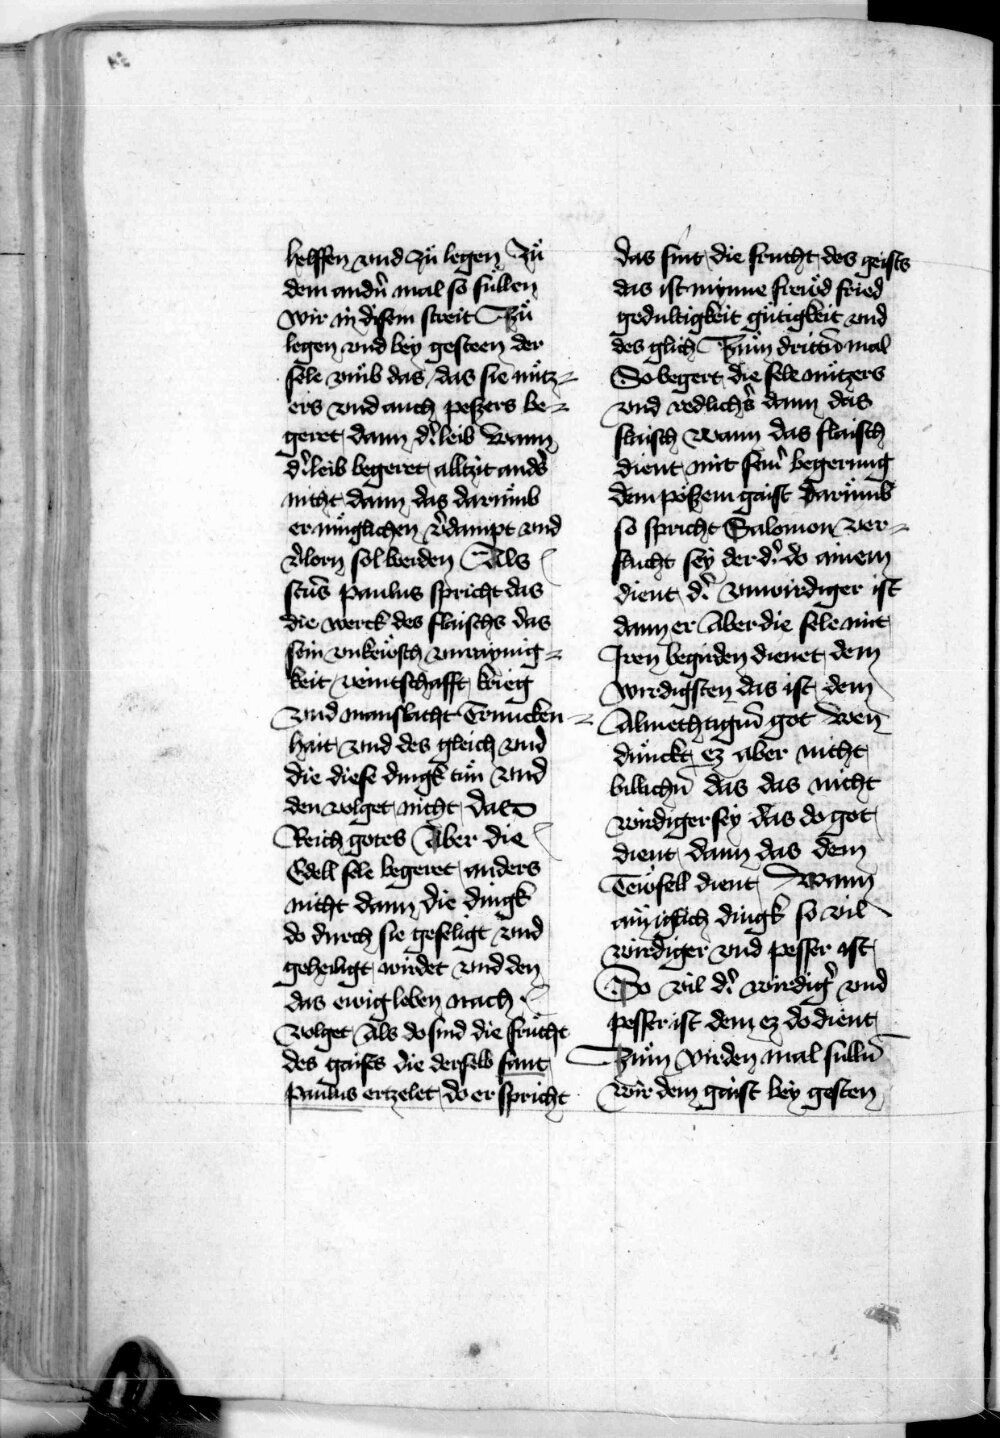 helffen vnd zů legen Zů
dem andn̄ mal so süllen
wir in disem streit Zů
legen vnd bey gesteen der
sele vmb das / das sie nütz-
ers vnd auch pessers be-
geret dann d' leib Wann
d' leib begeret alltzit and's
nicht dann das darumb
er müglichen v'dampt vnd
v'lorn sol werden Als
sctūs paulus spricht das
die werck des flaischs das
sein vnkeẅsch vnraynig-
keit veintschafft krieg
vnd manslacht Truncken-
hait vnd des gleich vnd
die diese dingk tün vnd
den volget nicht das
Reich gotes Aber die
Edell sele begeret anders
nicht dann die dingk
do durch sie geseligt vnd
geheiligt wirdet vnd den
das ewig leben nach
volget Als do sind die frücht
des gaists die derselb sant
paulus ertzelet do er spricht
das sint die frucht des geists
das ist mynne frewd fried
gedultigkeit gütigkeit vnd
des glich Zum drittn̄ mal
So begert die sele nützers
vnd redlich's dann das
flaisch wann das flaisch
dient mit sein' begerung
dem pösem gaist Darumb
so spricht Salomon ver-
flucht sey der d' do ainem
dient d' vnwirdiger ist
dann er Aber die sele mit
Iren begirden dienet dem
wirdigsten das ist dem
Almechtign̄ got Wen
dünckt ez aber nicht
billichn̄ das das nicht
wirdiger sey das do got
dient dann das dem
Teẅfell dient Wann
ain iglich dingk so vil
wirdiger vnd pesser ist
So vil d' wirdig' vnd
pesser ist dem ez do dient
Zum virden mal sülln̄
wir dem gaist bey gesten